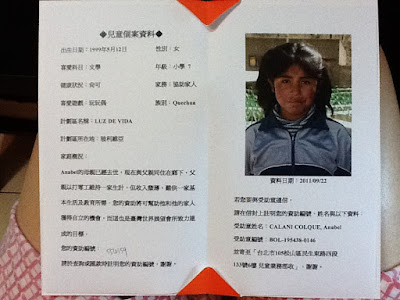 ◆兒童個案資料◆
出生日期:1999年8月12日 性別:女
喜愛科目:文學 年級:小學
健康狀況:尚可 家務:協助家人
喜愛遊戲:玩玩偶 族語:Quechua
計劃區名稱:LUZ DE VIDA
計劃區所在地:玻利維亞
家庭概況:
Anabel的母親已經去世,現在與父親同住在鄉下,父
親以打零工維持一家生計,但收入微薄,難供一家基
本生活及教育所需。您的資助將可幫助他和他的家人
獲得自立的機會,而這也是臺灣世界展望會所致力達
成的目標。
您的資助編號:
請於查詢或匯款時註明您的資助編號,謝謝。
資料日期:2011/09/22
若您要與受助童通信,
請在信封上註明您的資助編號、姓名與以下資料:
受助童姓名:CALANI COLQUE, Anabel
受助童編號:BOL-195438-0146
並寄至「台北市105松山區民生東路四段
133號6樓 兒童業務部收」,謝謝。